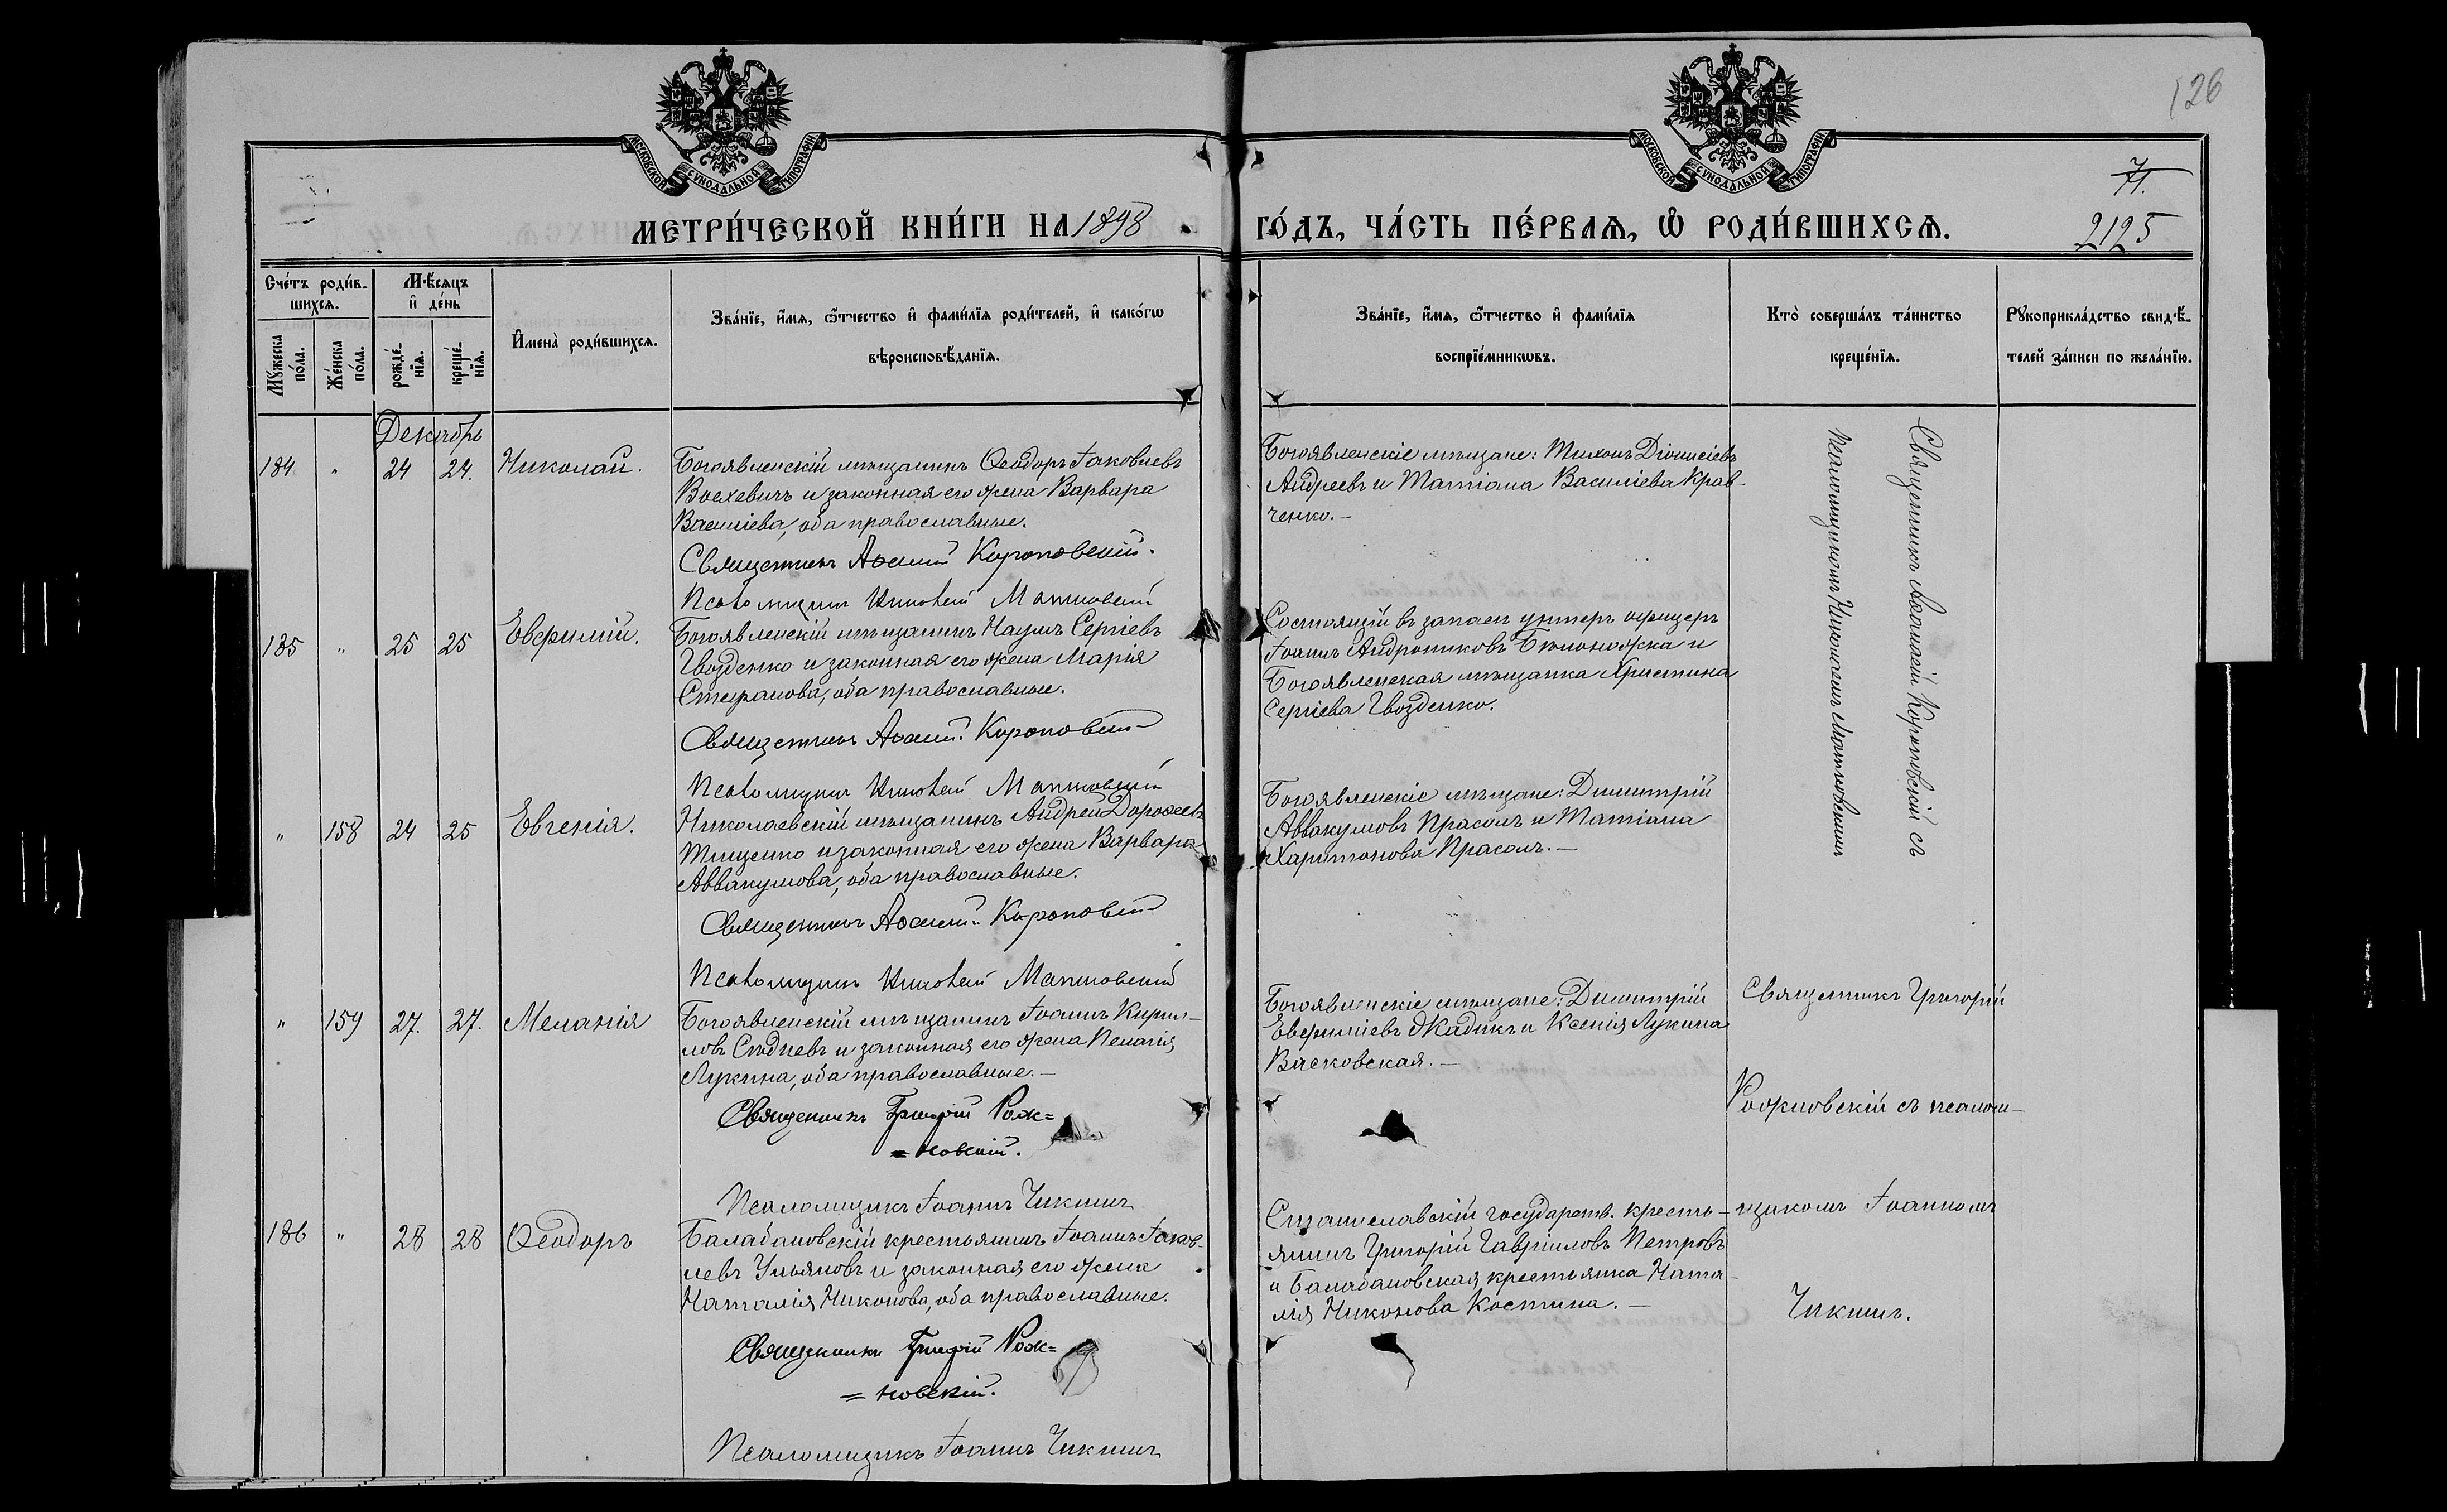 126
71.
2125
МОСКОВСКОЙ СѴНОДАЛЬНОЙ ТИПОГРАФІИ
МОСКОВСКОЙ СѴНОДАЛЬНОЙ ТИПОГРАФІИ
МЕТРИ́ЧЕСКОЙ КНИ́ГИ НА 1898 ГО́ДЪ, ЧА́СТЬ ПЕ́РВАѦ, Ѽ РОДИ́ВШИХСѦ.
Сче́тъ роди́в-
шихсѧ.
Мѣ́сѧцъ
и҆ де́нь
Мꙋ́жеска
по́ла.
Же́нска
по́ла.
рожде́-
нїѧ.
креще́-
нїѧ.
И҆мена̀ роди́вшихсѧ.
Зва́нїе, и҆́мѧ, ѻ҆́тчество и҆ фами́лїѧ роди́телей, и҆ како́гѡ
вѣроисповѣ́данїѧ.
Зва́нїе, и҆́мѧ, ѻ҆́тчество и҆ фами́лїѧ
воспрїе́мникѡвъ.
Кто̀ соверша́лъ та́инство
креще́нїѧ.
Рꙋкоприкла́дство свидѣ́-
телей за́писи по жела́нїю.
Декабрь
184 " 24 24. Николай.
Богоявленскій мѣщанинъ Ѳеодоръ Іаковлевъ
Воехевичъ и законная его жена Варвара
Василіева, оба православные.
Священникъ Короповскій.
Псаломщикъ Матковскій
Богоявленскіе мѣщане: Тихонъ Діонисіевъ
Андреевъ и Татіана Василіева Крав-
ченко.-
Священникъ Аѳанасій Короповскій съ
псаломщикомъ Матковскимъ
185 " 25 25 Евфимій.
Богоявленскій мѣщанинъ Наумъ Сергіевъ
Гвозденко и законная его жена Марія
Стефанова, оба православные.
Священникъ Короповскій
Псаломщикъ Матковскій
Состоящій въ запасѣ унтеръ офицеръ
Іоаннъ Андрониковъ Бѣлоножка и
Богоявленская мѣщанка Христина
Сергіева Гвозденко.
" 158 24 25 Евгенія.
Николаевскій мѣщанинъ Андрей Дороѳеевъ
Тищенко и законная его жена Варвара
Аввакумова, оба православные.
Священникъ Короповскій
Псаломщикъ Матковскій
Богоявленскіе мѣщане: Димитрій
Аввакумовъ Прасолъ и Татіана
Харитонова Прасолъ.-
" 159 27. 27. Меланія
Богоявленскій мѣщанинъ Іоаннъ Кирил-
ловъ Слѣдневъ и законная его жена Пелагія
Лукина, оба православные.-
Священникъ Григорій Рож=
=новскій.
Псаломщикъ Іоаннъ Чикшинъ
Богоявленскіе мѣщане: Димитрій
Евфиміевъ Жадикъ и Ксенія Лукина
Васковская.-
Священникъ Григорій
Рожновскій съ псалом-
щикомъ Іоанномъ
Чикшин.
186 " 28 28 Ѳеодоръ
Балабановскій крестьянинъ Іоаннъ Іаков-
левъ Ульяновъ и законная его жена
Наталія Никонова, оба православные.
Священникъ Григорій Рож=
=новскій.
Псаломщикъ Іоаннъ Чикшинъ
Станиславскій государств. кресть-
янинъ Григорій Гавріиловъ Петровъ
и Балабановская крестьянка Ната-
лія Никонова Костина.-